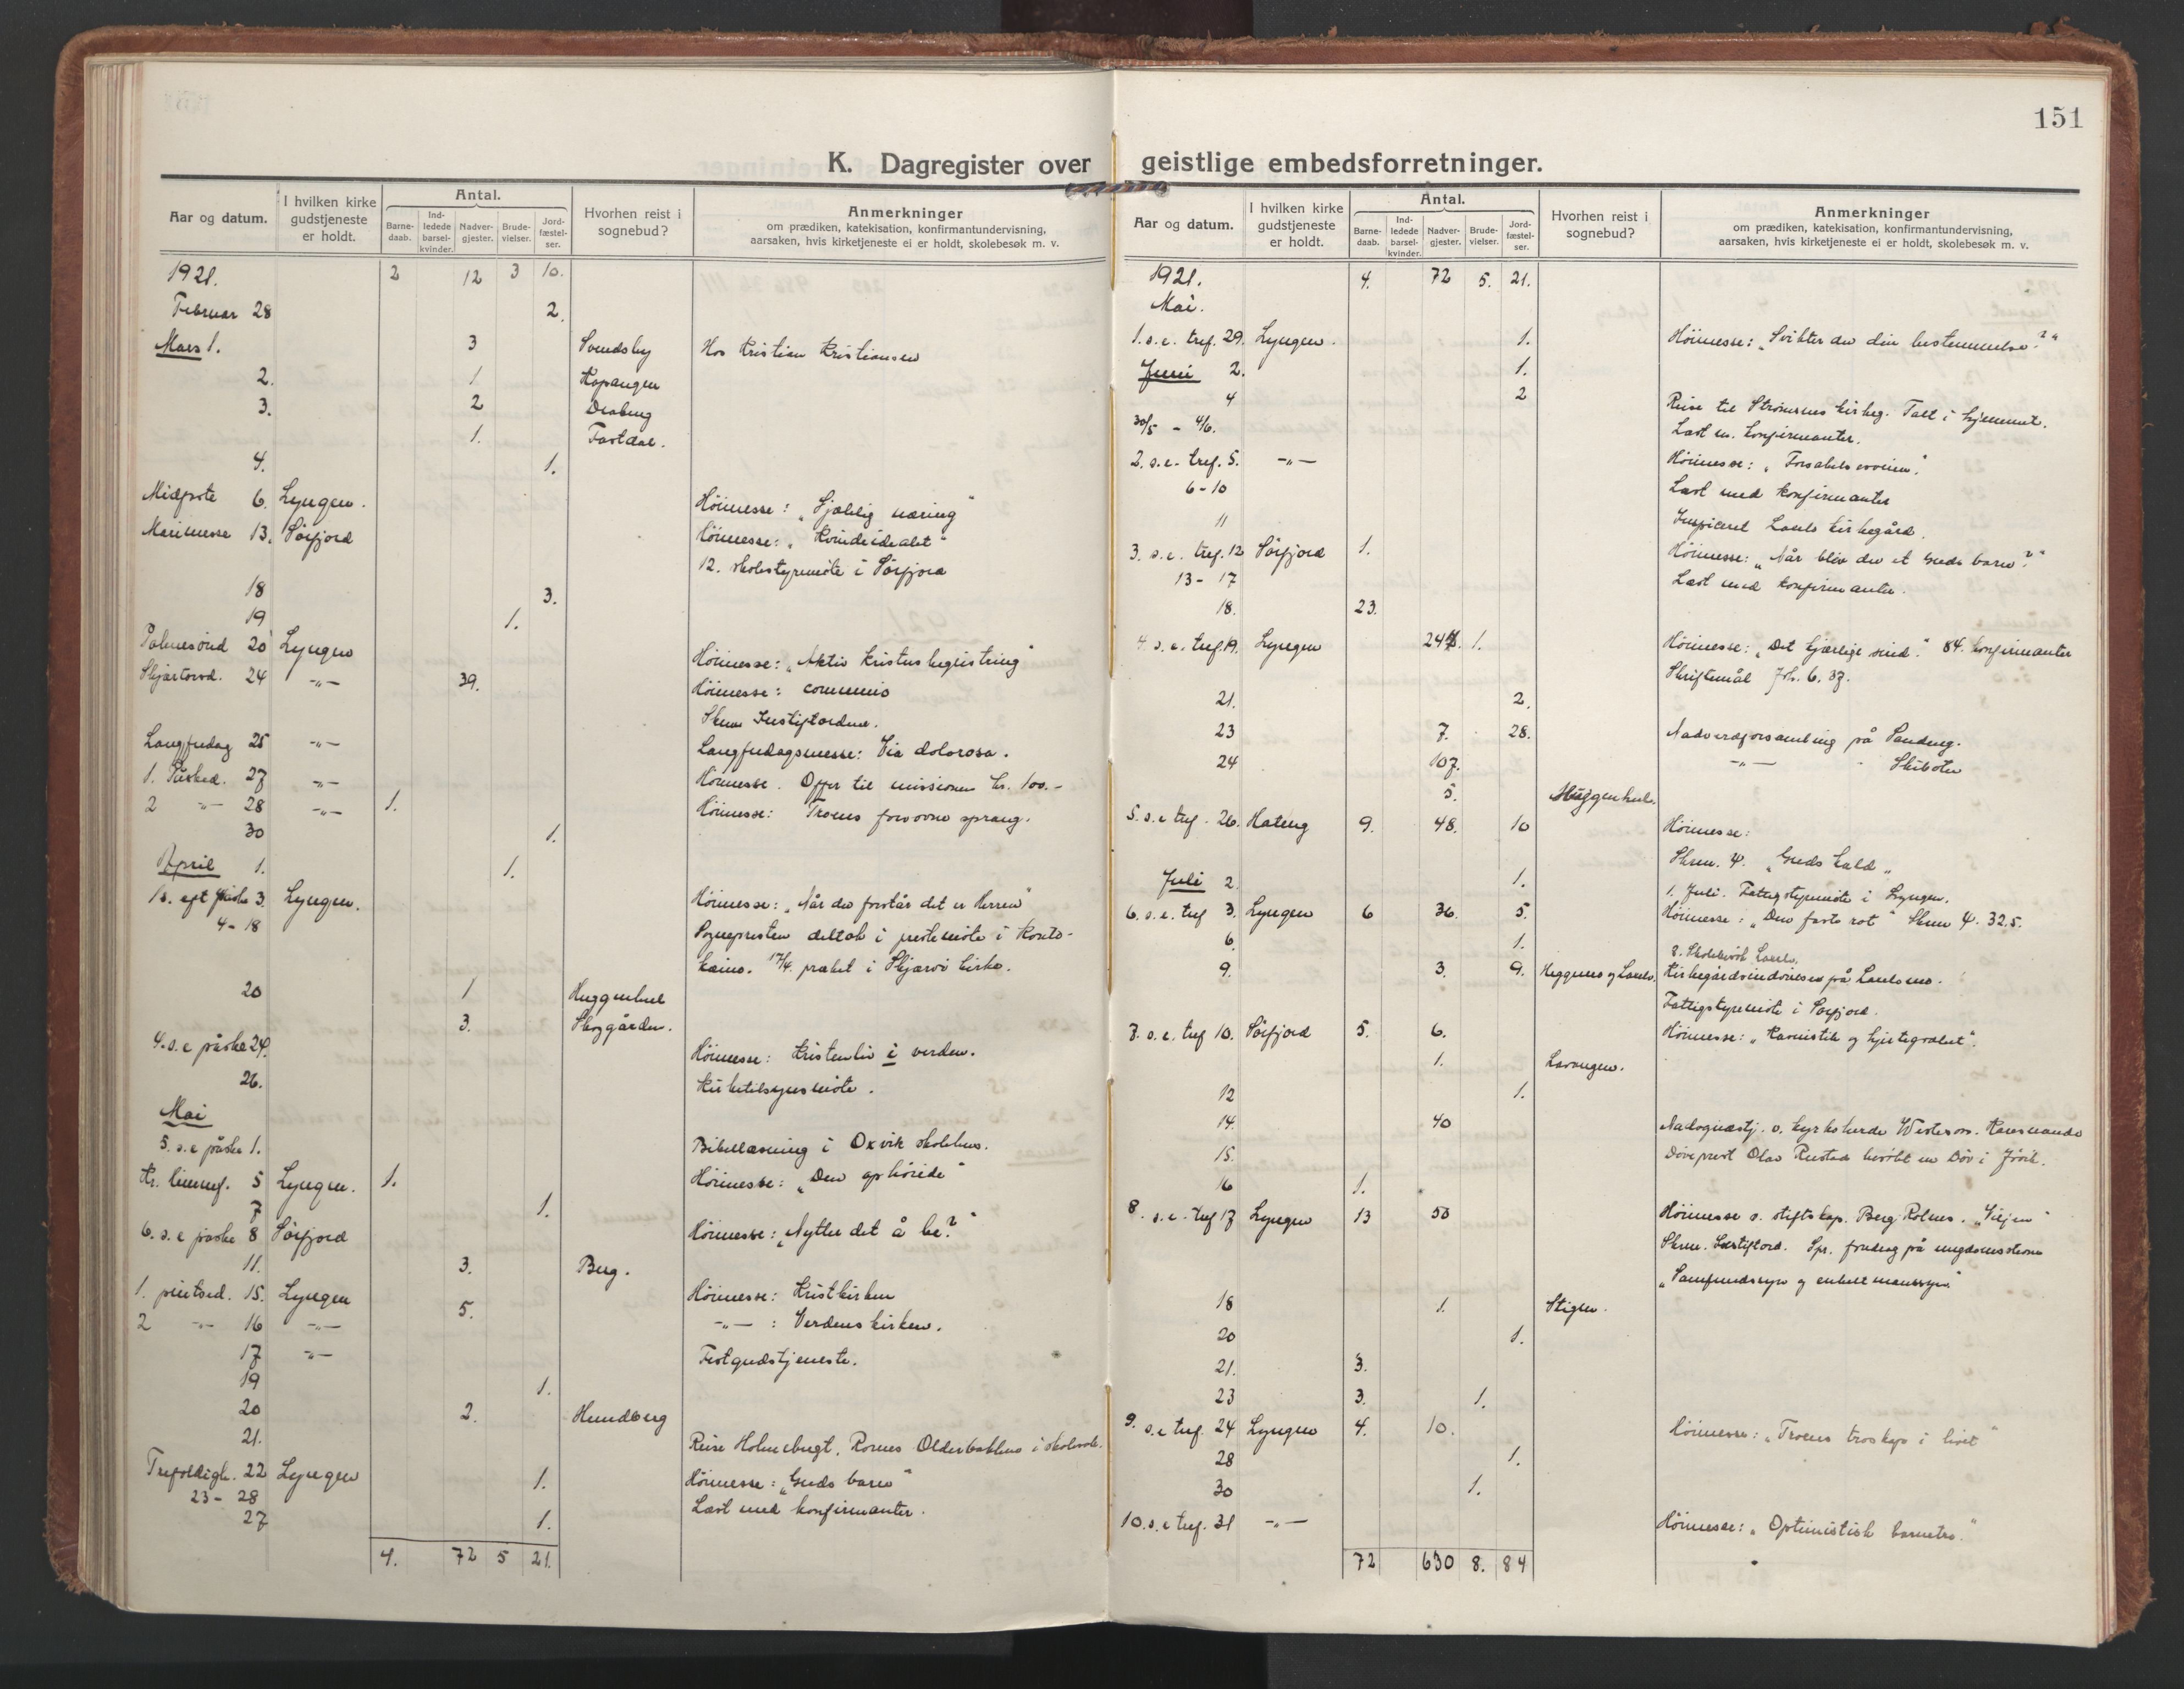 151
K. Dagregister over geistlige embedsforretninger.
Aar og datum. I hvilken kirke gudstjeneste er holdt. Antal. Barne-daab. Ind-ledede barsel-kvinder. Nadver-gjester. Brude-vielser. Jord-fæstel-ser. Hvorhen reist i sognebud? Anmerkninger om prædiken, katekisation, konfirmantundervisning, aarsaken, hvis kirketjeneste ei er holdt, skolebesøk m. v.
1921. 2 12 3 10.
Februar 28 2.
Mars 1. 3 Svendsby Hos Kristian Kristiansen
2. 1. Kopangen
3. 2
1. Fastdal.
4. 1.
Midfaste 6. Lyngen. Höimesse: „Sjælelig næring"
Mariamesse 13. Sörfjord Höimesse: „Kvindeidealet"
12. skolestyremöte i Sörfjord
18 3.
19 1.
Palmesönd 20 Lyngen Höimesse: „Aktiv Kristusbegeistring"
Skjærtorsd. 24 -„- 39. Höimesse: communio
Skrm Instiftordene.
Langfredag 25 -„- Langfredagsmesse: Via dolorosa.
1. Påsked. 27 -„- Höimesse. Offer til missionen kr. 100.-
2 -„- 28 -„- 1. Höimesse: Troens forvovne sprang.
30 1.
April 1. 1.
1s. eft påske 3. Lyngen. Höimesse: „Når du forstår det er Herren"
4-18 Sognepresten deltok i prestemöte i Kauto-
keino. 17/4. præket i Skjærvö kirke.
20 1 Huggenhul
3. Skoggården.
4. s. e påske 24. Höimesse: Kristenliv i verden.
26. Kirketilsynsmöte.
Mai
5. s. e påske 1. Bibellæsning i Oxvik skolehus.
Kr. himmelf. 5 Lyngen. 1. Höimesse: „Den ophöiede"
7 1.
6. s. e påske 8 Sörfjord Höimesse: „Nytter det å be?"
11. 3. Berg.
1. pintsed. 15. Lyngen Höimesse: Kristkirken
2 -„- 16 -„- 5. -„- : Verdenskirken.
17 -„- Festgudstjeneste.
19 1.
20 2. Hundberg
21. Reise Holmebugt, Rornes Olderbakken i skolesak.
Trefoldigh. 22 Lyngen 1. Höimesse: „Guds barn"
23-28 Læst med konfirmanter.
27 1.
4. 72 5 21.
Aar og datum. I hvilken kirke gudstjeneste er holdt. Antal. Barne-daab. Ind-ledede barsel-kvinder. Nadver-gjester. Brude-vielser. Jord-fæstel-ser. Hvorhen reist i sognebud? Anmerkninger om prædiken, katekisation, konfirmantundervisning, aarsaken, hvis kirketjeneste ei er holdt, skolebesøk m. v.
1921. 4. 72 5. 21.
Mai.
1. s. e. tref. 29. Lyngen. 1. Höimesse: „Svikter du din bestemmelse?"
Juni 2. 1.
4 2 Reise til Strömsnes kirkeg. Talt i hjemmet.
30/5 - 4/6. Læst m. konfirmanter.
2. s. e. tref. 5. -„- Höimesse: „Forsakelsesveien."
6-10 Læst med konfirmanter
11 Inspiceret Lakselv kirkegård.
3. s. e. tref. 12 Sörfjord 1. Höimesse: „Når blev du et Guds barn?"
13-17 Læst med konfirmanter.
18. 23.
4. s. e. tref. 19. Lyngen 1. Höimesse: „Det kjærlige sind." 84. konfirmanter
Skriftemål Joh. 6. 37.
21. 2.
23 7. 28. Nadverdforsamling på Sandeng.
24 107. -„- Skibotn
5.
5. s. e tref. 26. Hateng 9. 48. 10 Höimesse:
Skrm. 4. „Guds kald"
Juli 2. 1. 1. Juli. Fattigstyremöte i Lyngen.
6. s. e. tref 3. Lyngen 6 36. 5. Höimesse: „Den faste rot" Skrm 4. 32.5.
6. 1.
8. Skolebesök Lakselv.
9. 3. 9. Heggenes og Lakselv. Kirkegårdsindvielsen på Lakselvnes.
Fattigstyremöte i Sörfjord.
7. s. e. tref 10. Sörfjord 5. 6. Höimesse: „Kasuistik og hjertegodhet".
1. Lavangen.
12 1.
14. 40 Nadgudstj. v. kyrkoherde
15. Döveprest Olav Rustad besökt en döv i
16 1.
8. s. e. tref 17 Lyngen 13 50 Höimesse v. stiftskap. Berg Rolnes. „Viljen"
Skrm. Instiftord. Spr. foredrag på ungdomsstevne
„Samfundssyn og enkeltmannssyn."
18 1. Stigen.
20 1.
21. 3.
23 3. 1.
9. s. e tref. 24 Lyngen 4. 10. Höimesse: „Troens troskap i livet"
28 1.
30 1.
10. s. e tref. 31 -„- Höimesse: „Optimistisk barnetro."
72 630 8. 84